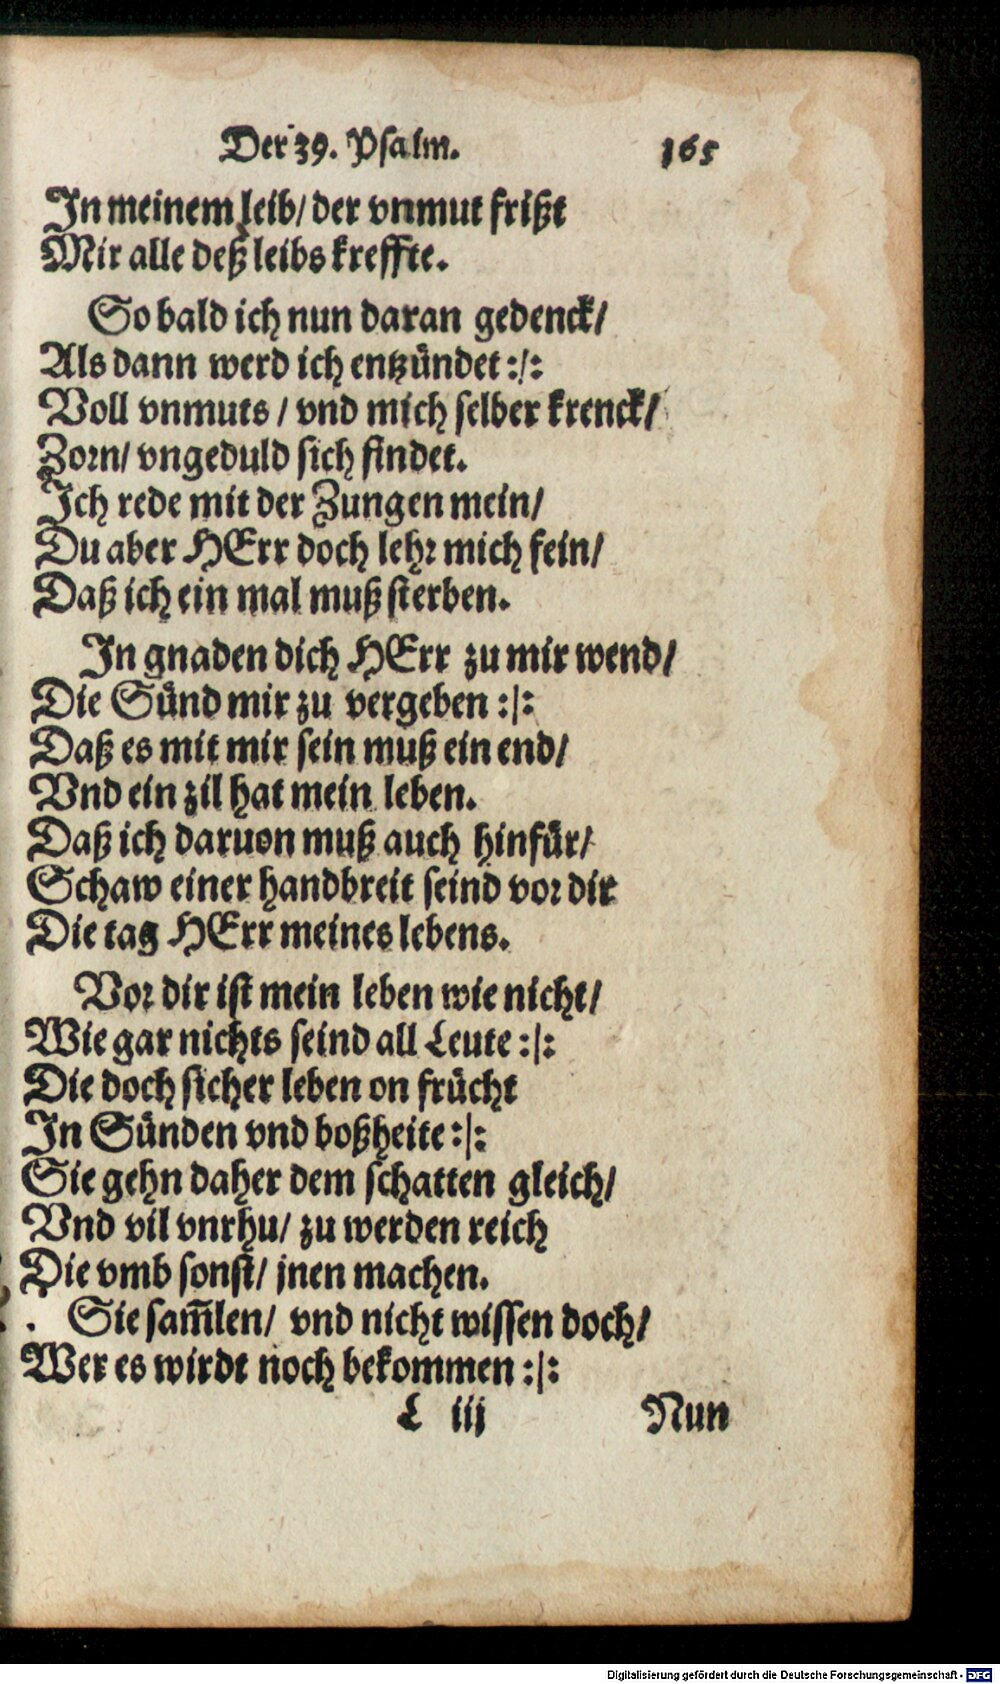 Der 39. Psalm. 165
In meinem leib/ der vnmut frißt
Mir alle deß leibs kreffte.
So bald ich nun daran gedenck/
Als dann werd ich entzündet :/:
Voll vnmuts / vnd mich selber krenck/
Zorn/ vngeduld sich findet.
Ich rede mit der Zungen mein/
Du aber HErr doch lehr mich fein/
Daß ich ein mal muß sterben.
In gnaden dich HErr zu mir wend/
Die Sünd mir zu vergeben :/:
Daß es mit mir sein muß ein end/
Vnd ein zil hat mein leben.
Daß ich daruon muß auch hinfür/
Schaw einer handbreit seind vor dir
Die tag HErr meines lebens.
Vor dir ist mein leben wie nicht/
Wie gar nichts seind all Leute :/:
Die doch sicher leben on frücht
In Sünden vnd boßheite :/:
Sie gehn daher dem schatten gleich/
Vnd vil vnrhu/ zu werden reich
Die vmb sonst/ jnen machen.
Sie sam̄len/ vnd nicht wissen doch/
Wer es wirdt noch bekommen :/:
L iij Nun
Digitalisierung gefördert durch die Deutsche Forschungsgemeinschaft - DFG